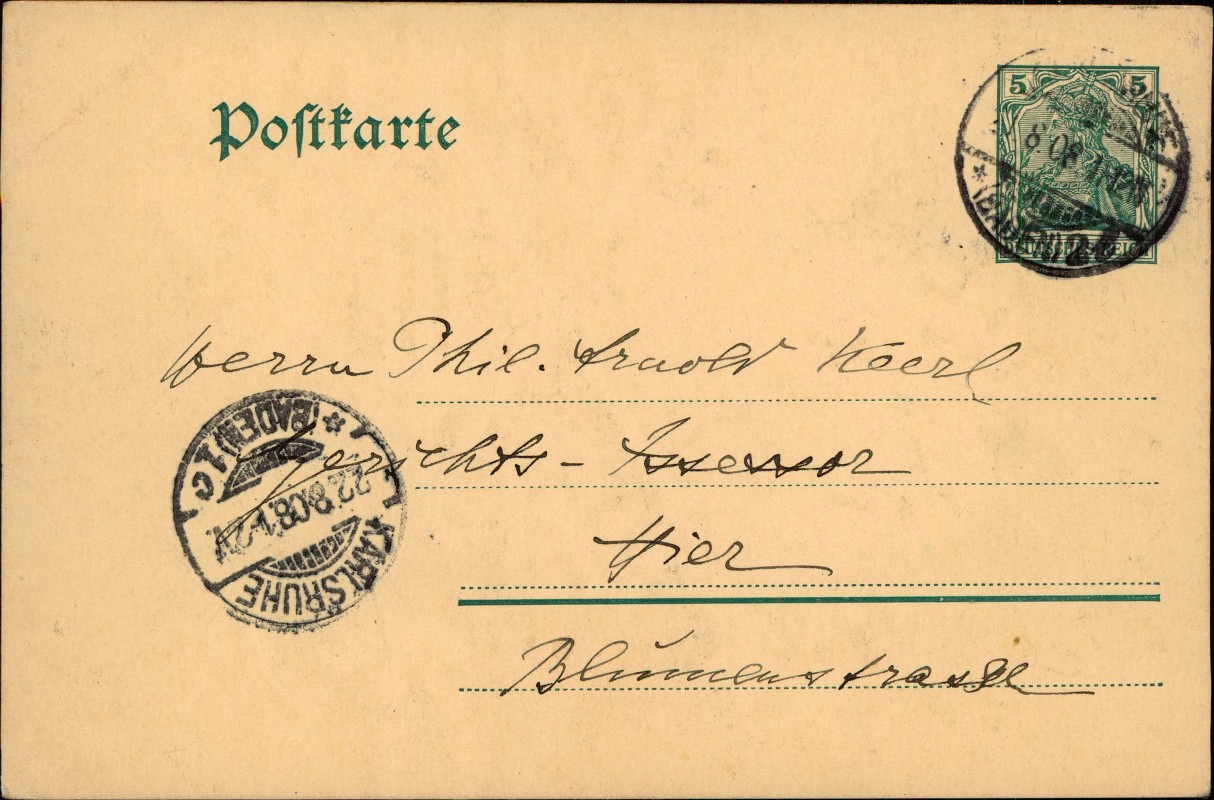 Postkarte
5 5
8.08.1-
(BADEN) 2
DEUTSCHES REICH
Herrn Phil. Arnold Keerl
Gerichts-Assessor
Hier
Blumenstrasse
KARLSRUHE
22.8.08.1-2N.
* (BADEN) 1c